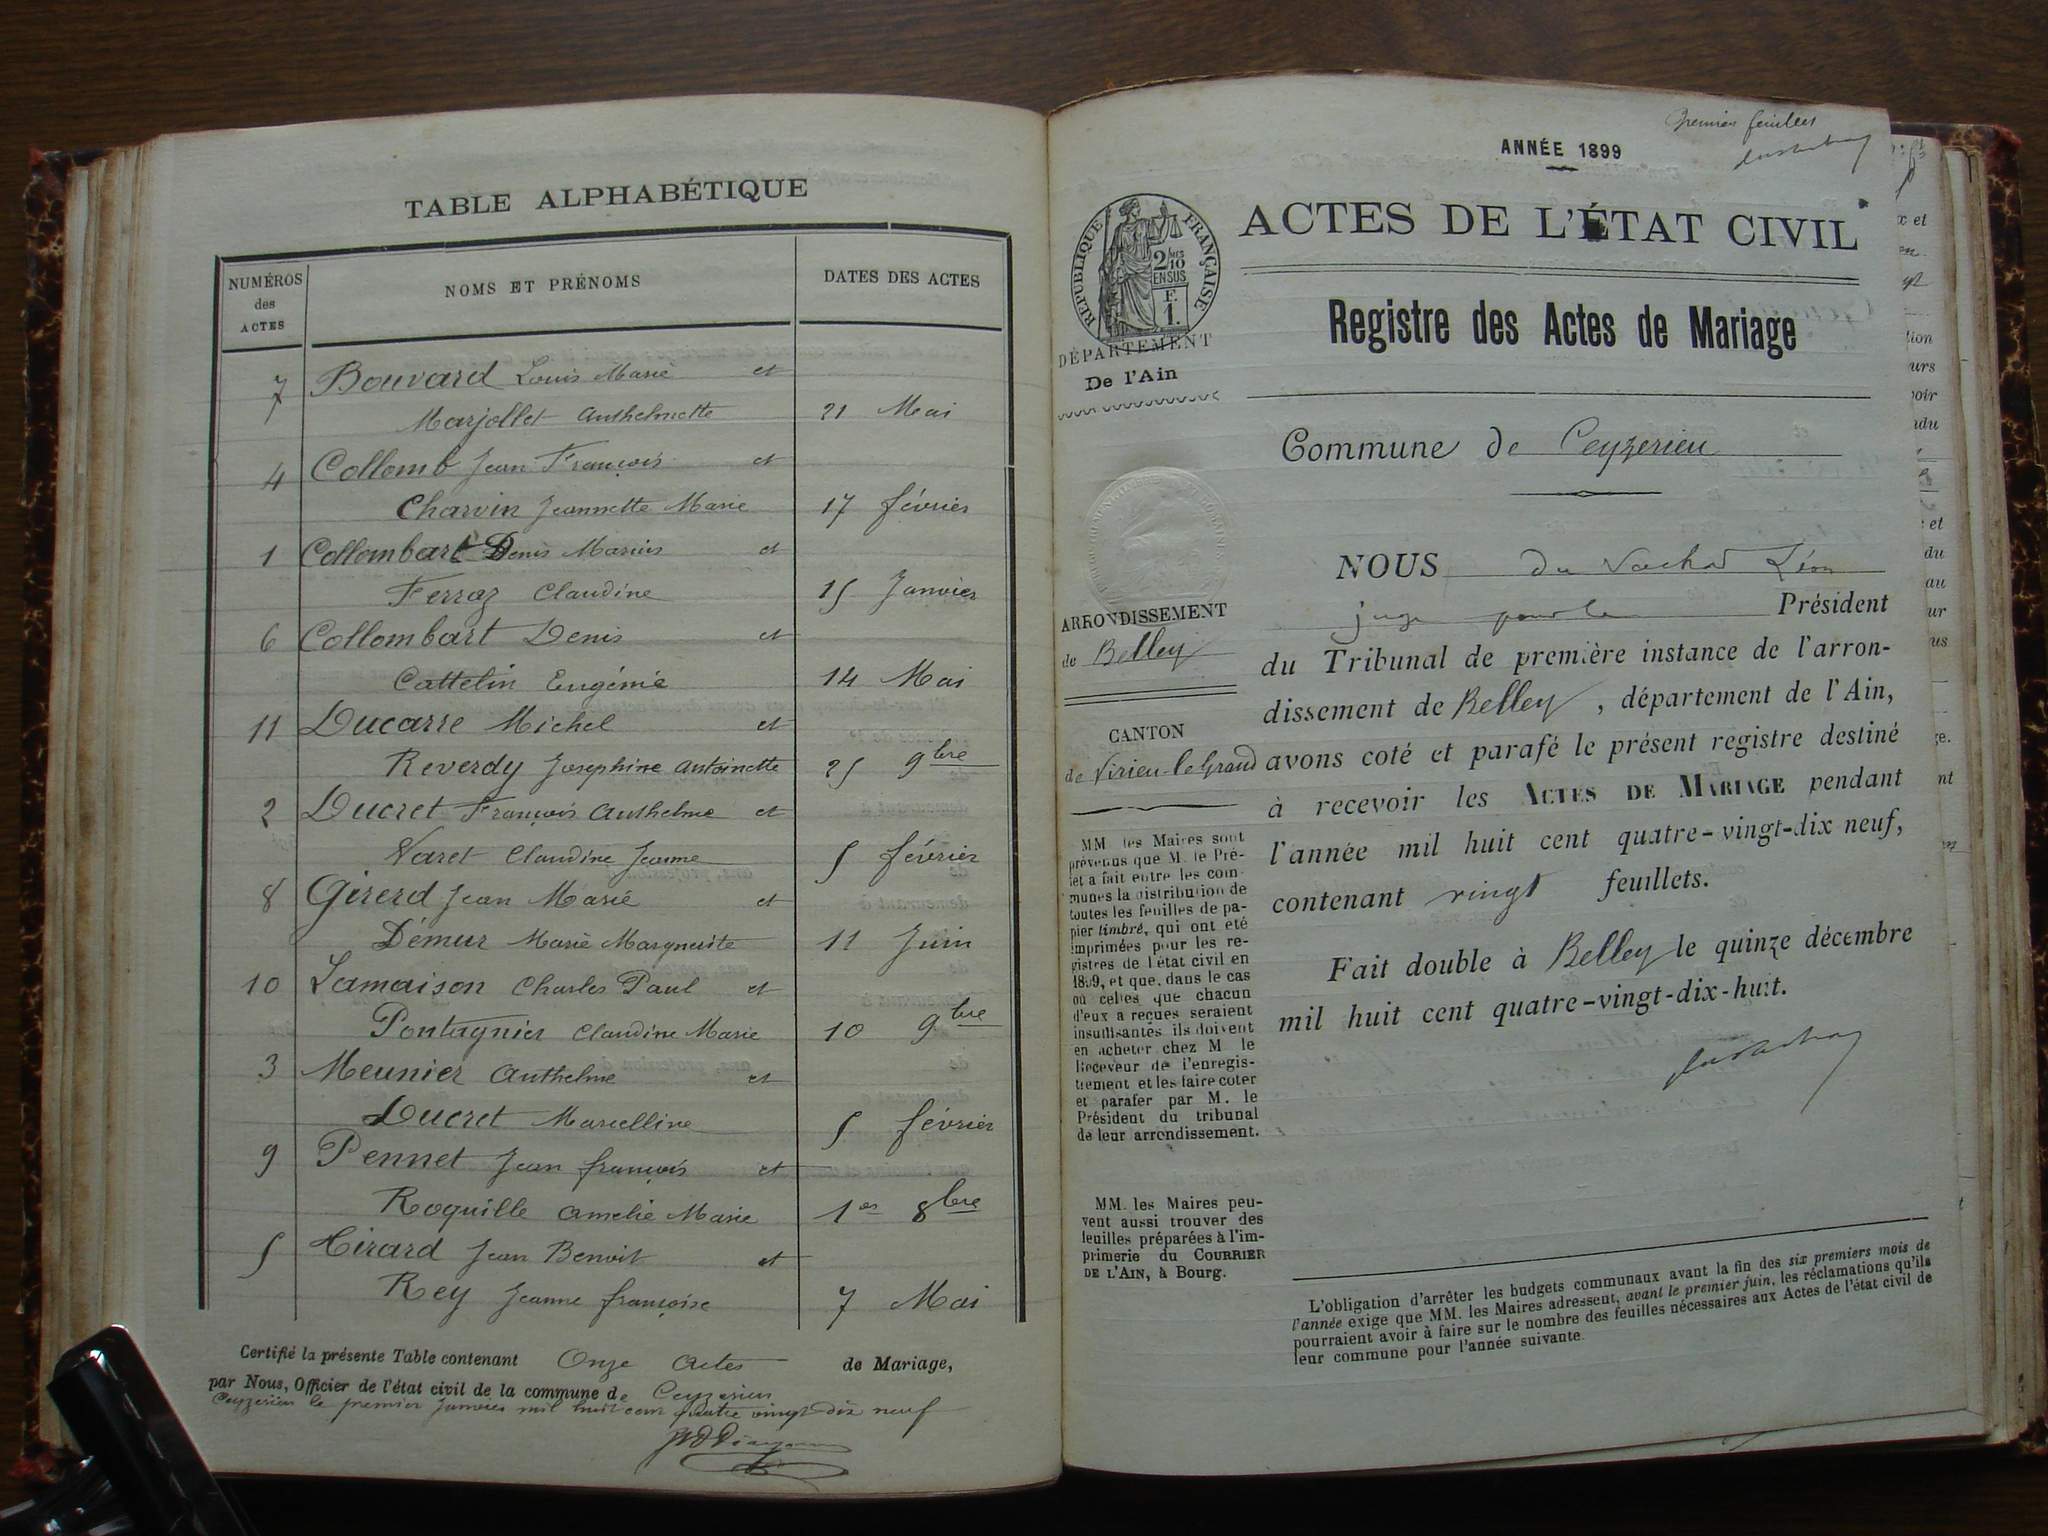 TABLE ALPHABÉTIQUE
NUMÉROS des ACTES
NOMS ET PRÉNOMS
DATES DES ACTES
7 Bouvard Louis Marie et
Marjollet Anthelmette 21 Mai
4 Collomb Jean François et
Charvin Jeannette Marie 17 février
1 Collombart Denis Marius et
Ferraz Claudine 15 Janvier
6 Collombart Denis et
Cattelin Eugénie 14 Mai
11 Ducarre Michel et
Reverdy Josephine Antoinette 25 9bre
2 Ducret François Anthelme et
Varet Claudine Jeanne 5 février
8 Girerd Jean Marie et
Démur Marie Marguerite 11 Juin
10 Lamaison Charles Paul et
Pontagnier Claudine Marie 10 9bre
3 Meunier Anthelme et
Ducret Marcelline 5 février
9 Pennet Jean françois et
Roquille Amelie Marie 1er 8bre
5 Girard Jean Benoit et
Rey Jeanne françoise 7 Mai
Certifié la présente Table contenant Onze Actes de Mariage,
par Nous, Officier de l'état civil de la commune de Ceyzerieu
Ceyzerieu le premier Janvier mil huit cent quatre vingt dix neuf
Premier feuillet
ANNÉE 1899
ACTES DE L'ÉTAT CIVIL
RÉPUBLIQUE FRANÇAISE
2/10 EN SUS
F. 1.
DÉPARTEMENT
De l'Ain
Registre des Actes de Mariage
Commune de Ceyzerieu
ARRONDISSEMENT
de Belley
CANTON
de Virieu-le-Grand
MM. les Maires sont
prévenus que M. le Pré-
fet a fait entre les com-
munes la distribution de
toutes les feuilles de pa-
pier timbré, qui ont été
imprimées pour les re-
gistres de l'état civil en
1899, et que, dans le cas
où celles que chacun
d'eux a reçues seraient
insuffisantes ils doivent
en acheter chez M. le
Receveur de l'enregis-
trement et les faire coter
et parafer par M. le
Président du tribunal
de leur arrondissement.
MM. les Maires peu-
vent aussi trouver des
feuilles préparées à l'im-
primerie du COURRIER
DE L'AIN, à Bourg.
NOUS du Vachat Léon
juge pour le Président
du Tribunal de première instance de l'arron-
dissement de Belley, département de l'Ain,
avons coté et parafé le présent registre destiné
à recevoir les ACTES DE MARIAGE pendant
l'année mil huit cent quatre-vingt-dix neuf,
contenant vingt feuillets.
Fait double à Belley le quinze décembre
mil huit cent quatre-vingt-dix-huit.
L'obligation d'arrêter les budgets communaux avant la fin des six premiers mois de
l'année exige que MM. les Maires adressent, avant le premier juin, les réclamations qu'ils
pourraient avoir à faire sur le nombre des feuilles nécessaires aux Actes de l'état civil de
leur commune pour l'année suivante.